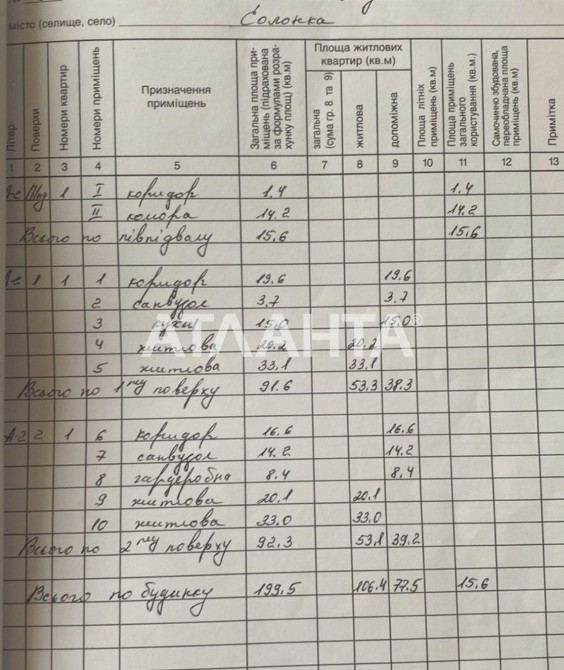 місто (селище, село) Солонка
Літер
Поверхи
Номери квартир
Номери приміщень
Призначення приміщень
Загальна площа приміщень (підрахована за формулами розрахунку площ) (кв.м)
Площа житлових квартир (кв.м)
загальна (сума гр. 8 та 9)
житлова
допоміжна
Площа літніх приміщень (кв.м)
Площа приміщень загального користування (кв.м.)
Самочинно збудована, переобладнана площа приміщень (кв.м)
Примітка
1 2 3 4 5 6 7 8 9 10 11 12 13
1 I коридор 1.4 1.4
II комора 14.2 14.2
Всього по півпідвалу 15,6 15,6
1 1 1 коридор 19.6 19.6
2 санвузол 3,7 3,7
3 кухня 15,0 15,0
4 житлова 20.2 20.2
5 житлова 33,1 33,1
Всього по 1му поверху 91.6 53,3 38,3
А-2 2 1 6 коридор 16.6 16.6
7 санвузол 14,2 14,2
8 гардеробна 8,4 8,4
9 житлова 20,1 20.1
10 житлова 33.0 33.0
Всього по 2му поверху 92.3 53,1 39.2
Всього по будинку 199,5 106.4 77.5 15,6
АТЛАНТА®